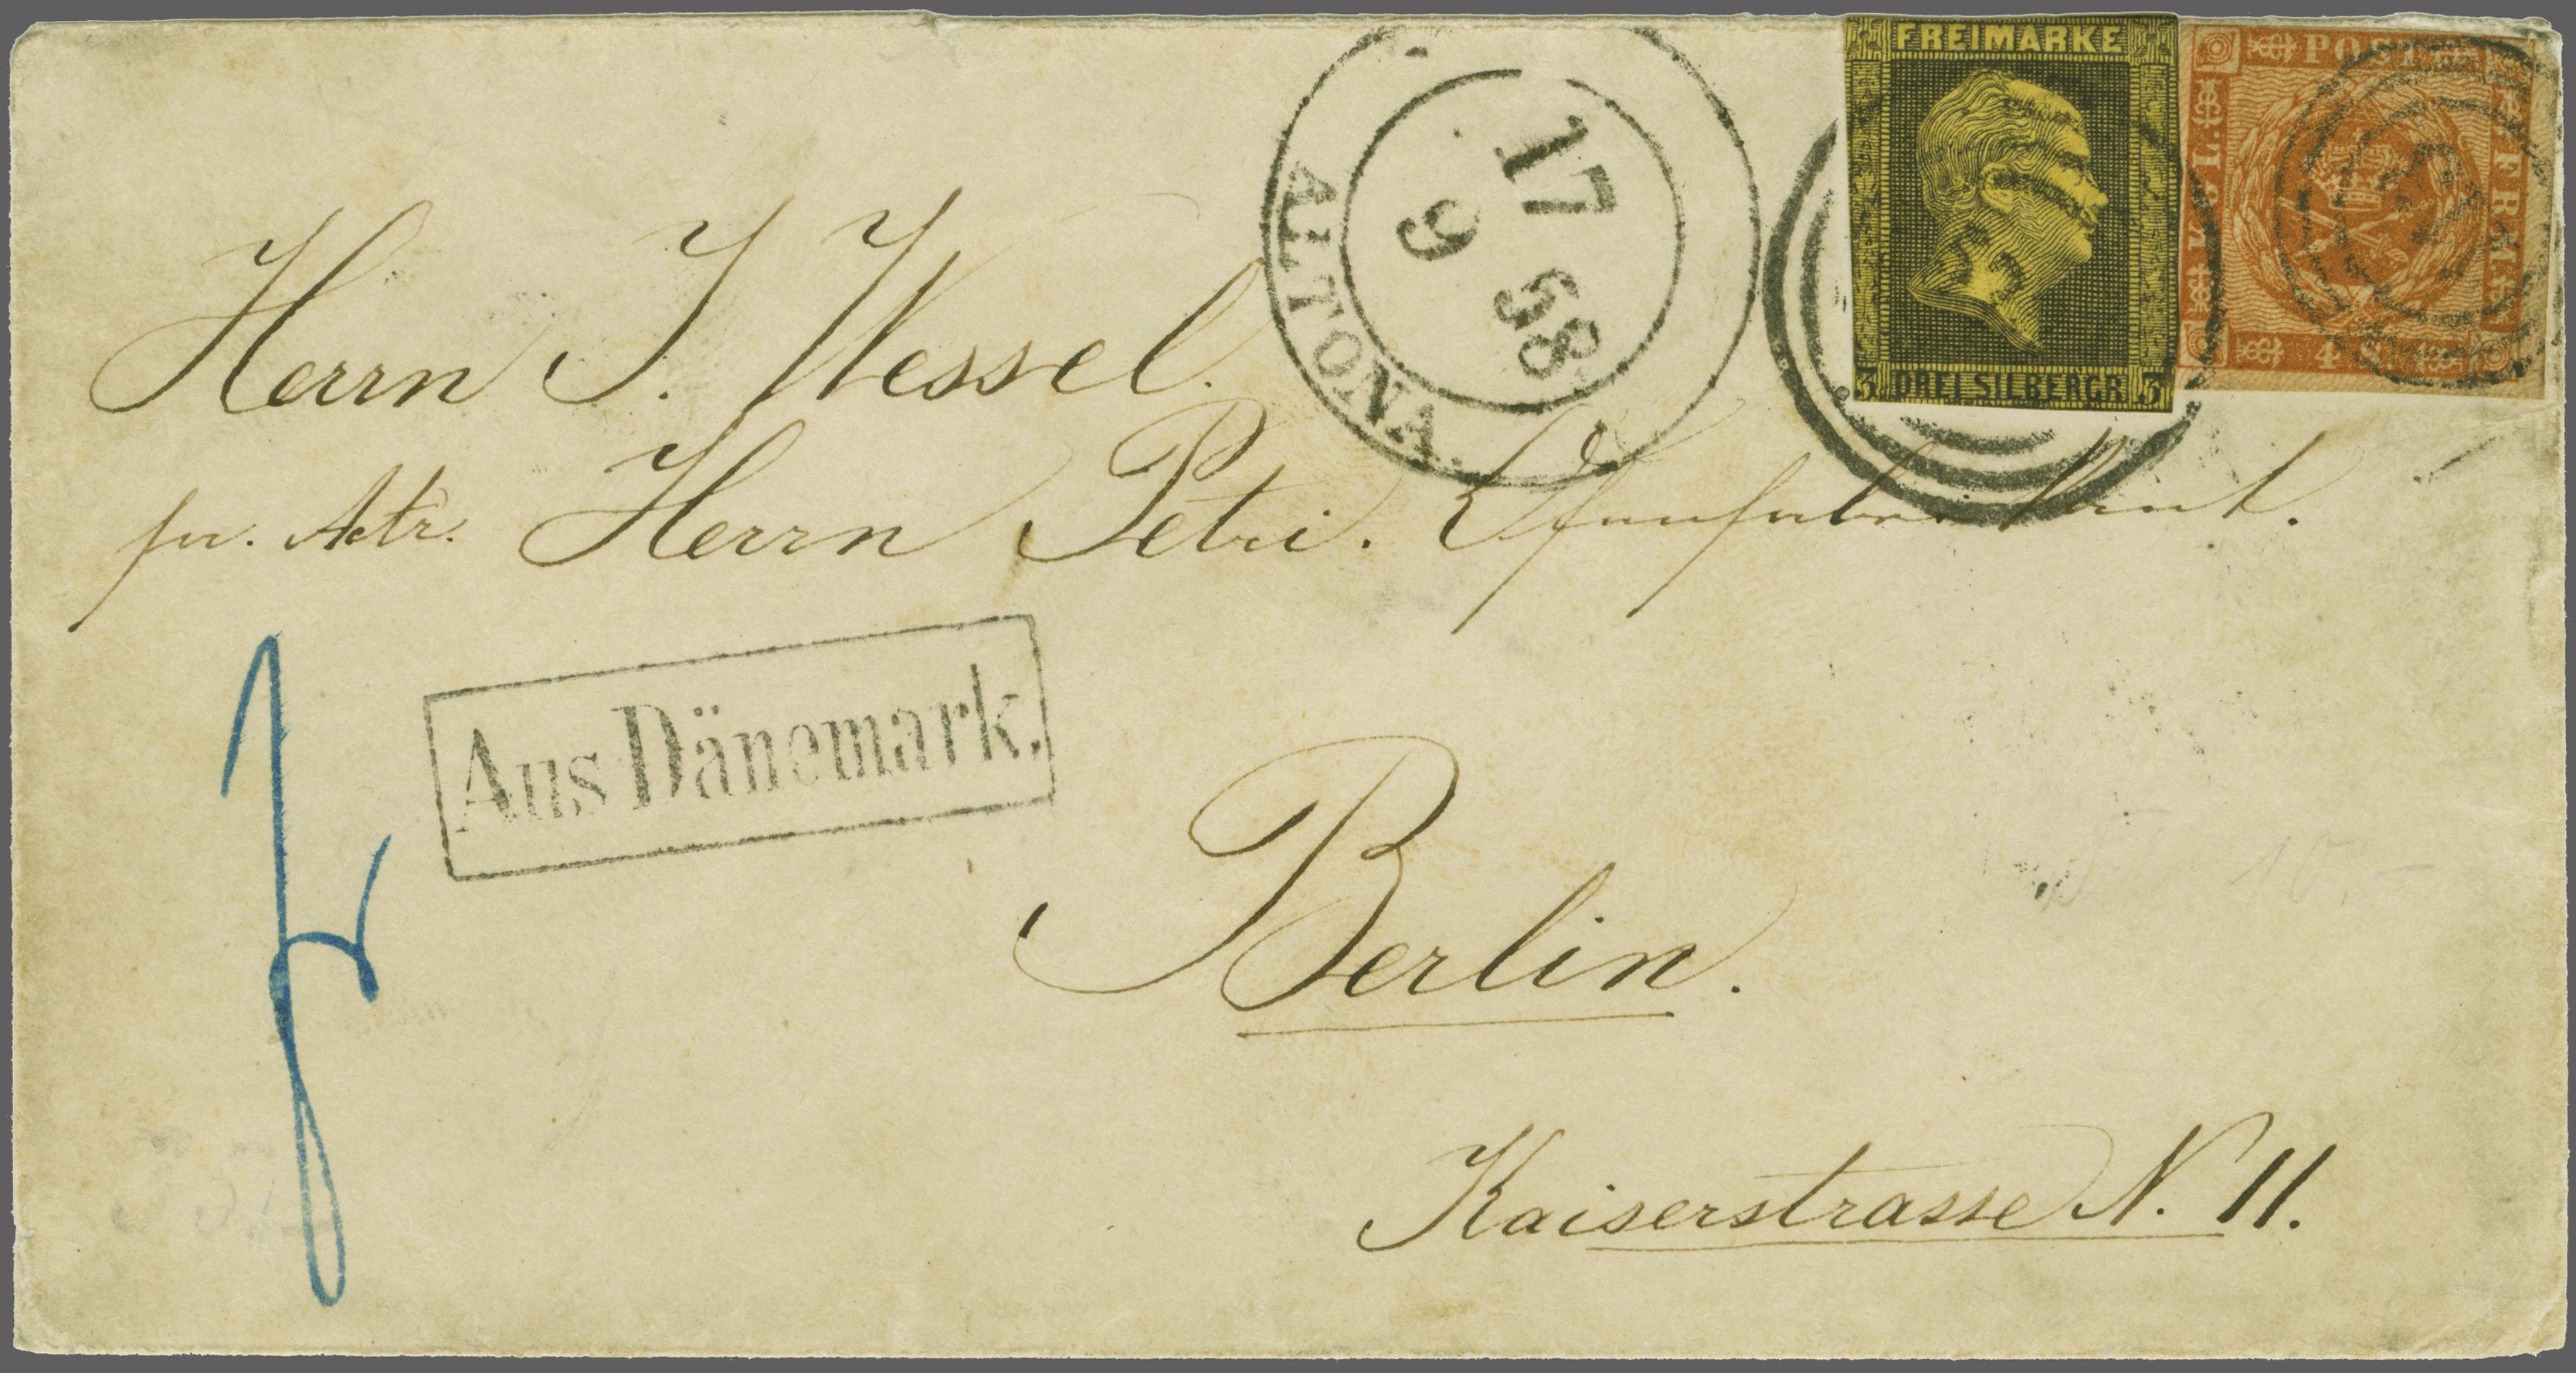 FREIMARKE
3 DREI SILBERGR 3
POST
FRM
4 S.
K G L.
ALTONA.
17 9 58
Herrn J. Wessel.
pr. Adr. Herrn Petri. Ofenfabrikant.
Aus Dänemark.
Berlin.
Kaiserstrasse N. 11.